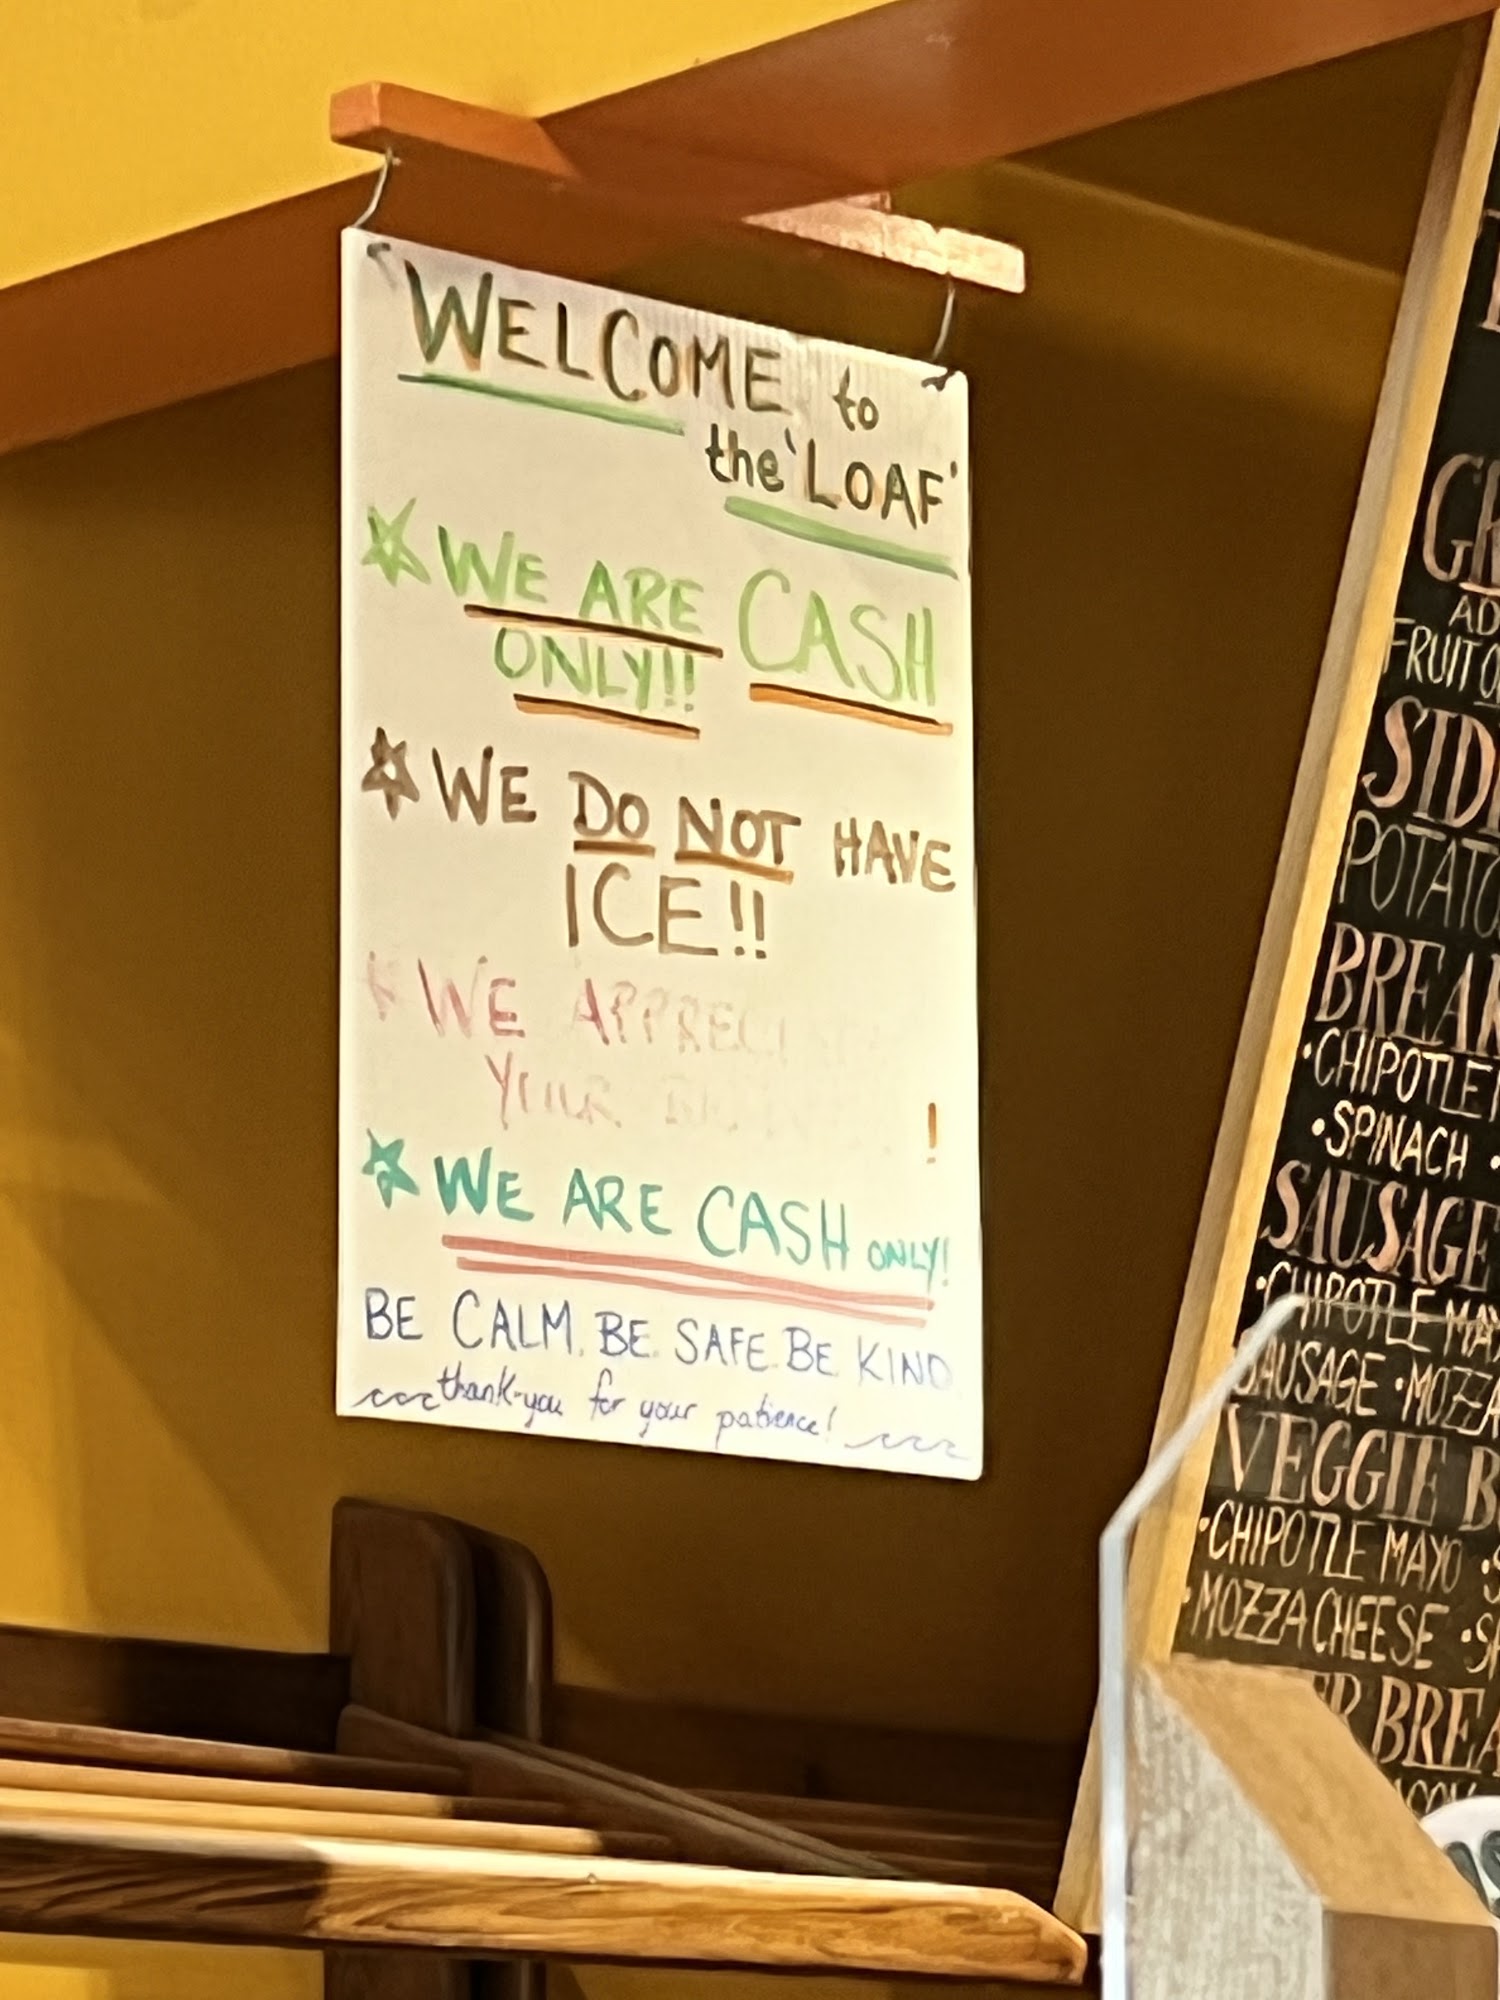 WELCOME to
the 'LOAF'
WE ARE CASH
ONLY!!
WE DO NOT HAVE
ICE!!
WE
YOUR
!
WE ARE CASH ONLY!
BE CALM. BE SAFE. BE KIND
thank-you for your patience!
AD
FRUIT
POTATO
CHIPOTLE
• SPINACH •
SAUSAGE
• CHIPOTLE MAYO
SAUSAGE • MOZZA
VEGGIE B
• CHIPOTLE MAYO •
• MOZZA CHEESE •